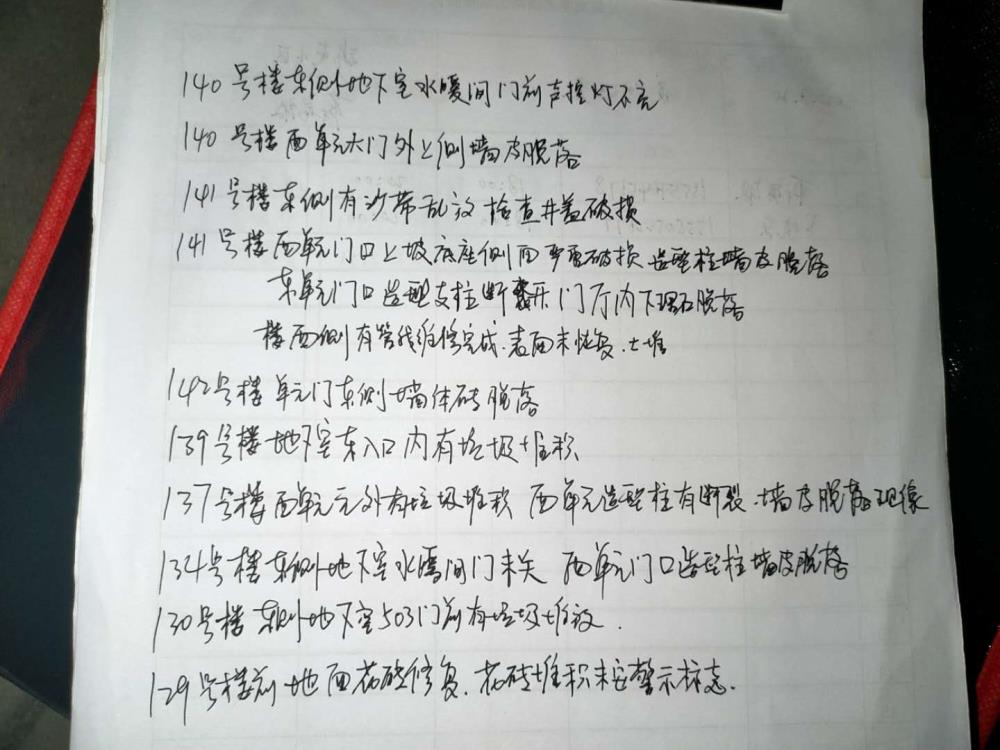 140号楼东侧地下室水暖间门前声控灯不亮
140号楼西单元大门外上侧墙皮脱落
141号楼东侧有沙带乱放 检查井盖破损
141号楼西单元门口上坡底座侧面严重破损 造型柱墙皮脱落
东单元门口造型支柱断裂开门厅内下理石脱落
楼西侧有管线维修完成.表面未恢复.土堆
142号楼单元门东侧墙体砖脱落
139号楼地下室东入口内有垃圾堆积
137号楼西单元外有垃圾堆积 西单元造型柱有断裂.墙皮脱落现像
134号楼东侧地下室水暖间门未关 西单元门口造型柱墙皮脱落
130号楼东侧地下室503门前有垃圾堆放.
129号楼前地面花砖修复.花砖堆积未安警示标志.